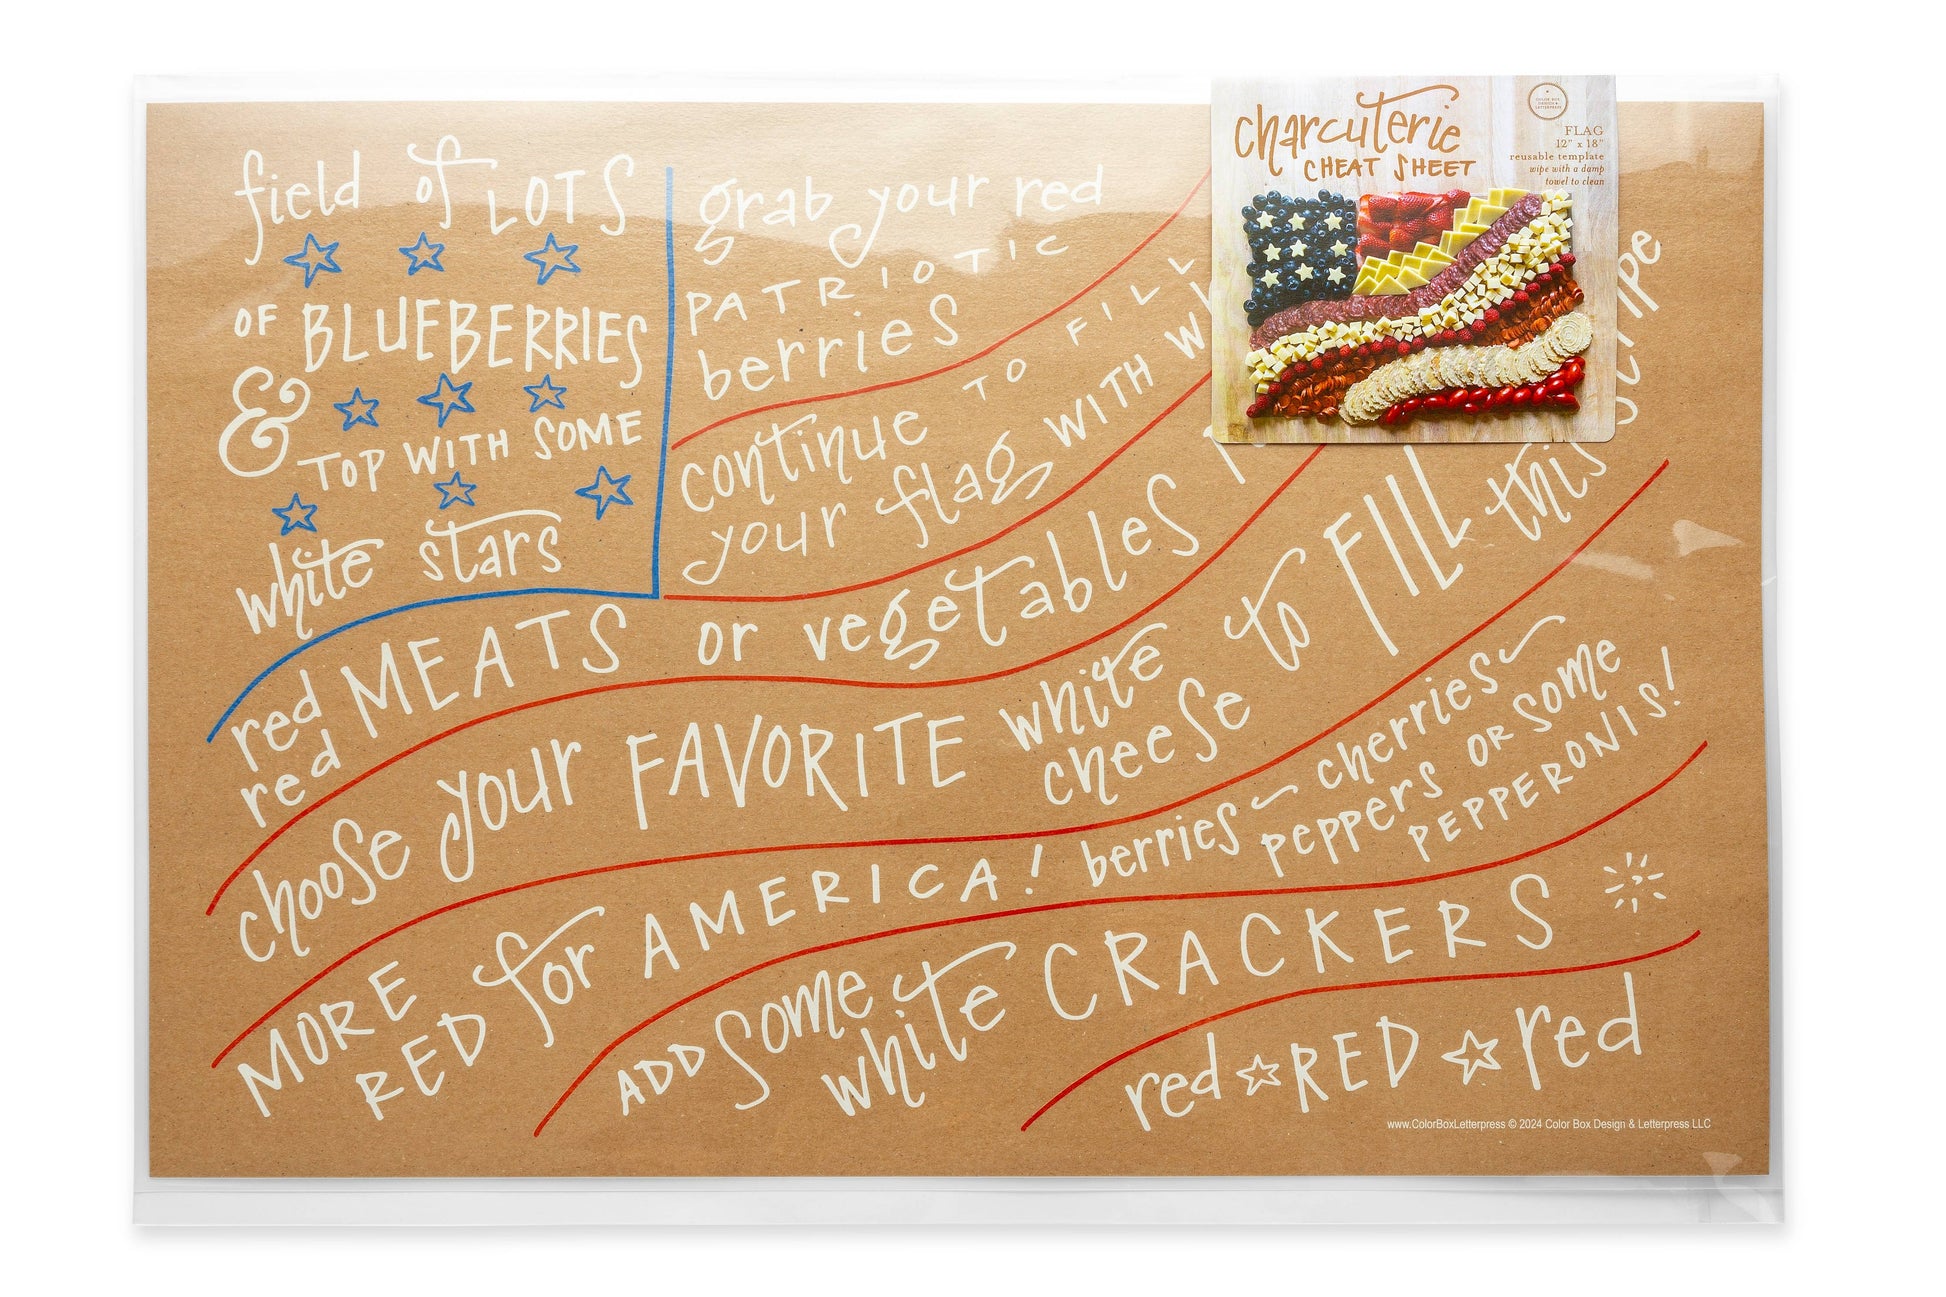 field of LOTS
OF BLUEBERRIES
& TOP WITH SOME
white stars
grab your red
PATRIOTIC
berries
continue TO FILL
your flag WITH
red MEATS or vegetables
red
choose your FAVORITE white
cheese to FILL this STRIPE
MORE
RED for AMERICA! berries ~ cherries ~
peppers OR SOME
PEPPERONIS!
ADD some
white CRACKERS
red RED red
www.ColorBoxLetterpress © 2024 Color Box Design & Letterpress LLC
charcuterie
CHEAT SHEET
COLOR BOX
DESIGN &
LETTERPRESS
FLAG
12" x 18"
reusable template
wipe with a damp
towel to clean